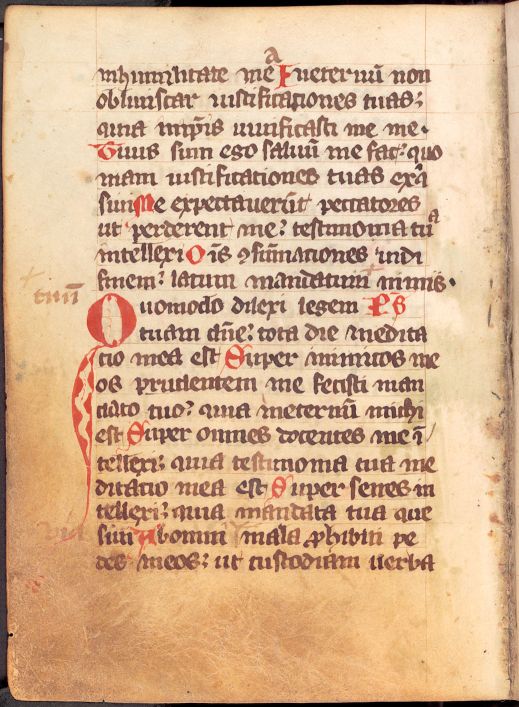 a
inhumilitate mea I neternū non
obliuiscar iustificationes tuas:
quia inip̄is uiuificasti me me.
Tuus sum ego saluū me fac: quo
niam iustificationes tuas exq̄
siui Me expectauerūt peccatores
ut perderent me: testimonia tua
intellexi Oīs ꝯsūmationes uidi
finem: latum mandatum nimis.
tuū
Quomodo dilexi legem Ps
tuam dn̄e: tota die medita
tio mea est Super inimicos me
os prudentem me fecisti man
dato tuo: quia ineternū michi
est Super omnes docentes me ī
tellexi: quia testimonia tua me
ditatio mea est Super senes in
tellexi: quia mandata tua que
siui Abomni mala ꝓhibiti pe
des meos: ut custodiam uerba